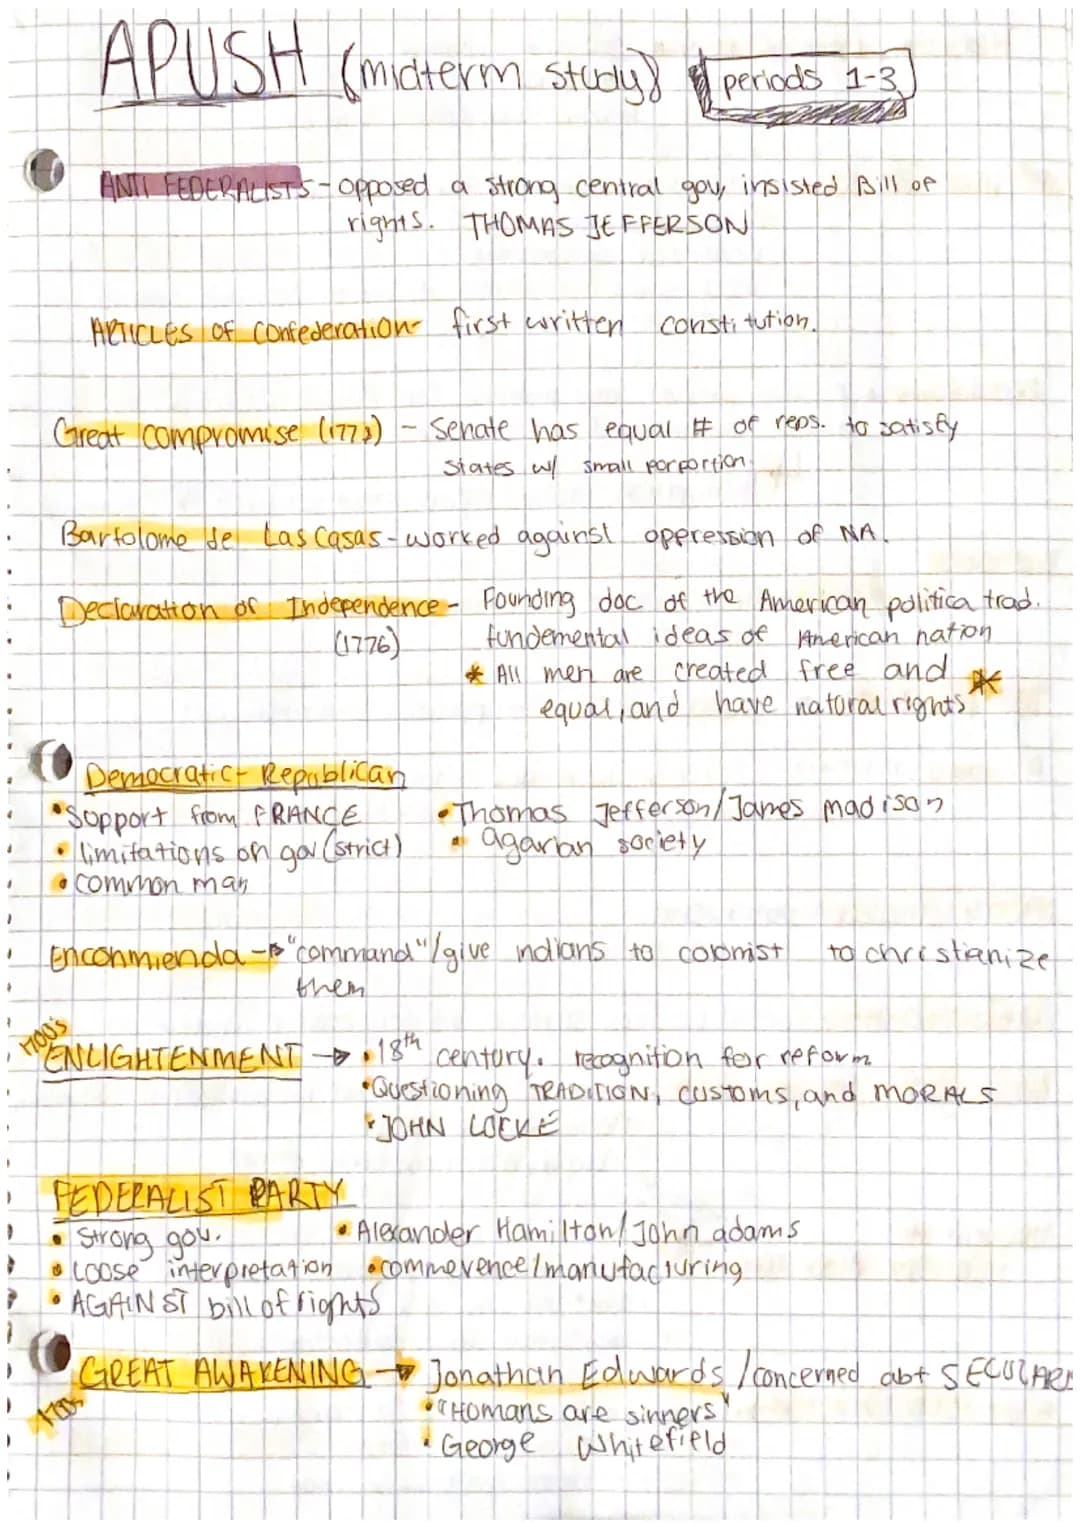 APUSH (midterm study) periods 1-3
ANTI FEDERALISTS - opposed a strong central gov, insisted Bill of
rights. THOMAS JEFFERSON
ARTICLES of Confederation- first written constitution.
Great compromise - Senate has equal # of reps. to satisfy
states w/ small porportion
Bartolome de Las Casas - worked against oppression of NA.
Declaration of Independence - Founding doc of the American politica trad.
(1776) fundemental ideas of American nation
* All men are created free and *
equal, and have natural rights
Democratic - Republican
• Support from FRANCE • Thomas Jefferson/James madison
• limitations on gov (strict) • agarian society
• common man
Enconmienda → "command"/give indians to colonist to christianize
them
1700's
ENLIGHTENMENT → • 18th century. recognition for reform
• Questioning TRADITION, customs, and MORALS
• JOHN LOCKE
FEDERALIST PARTY
• Strong gov. • Alexander Hamilton/John adams
• Loose interpretation • commerence/manufacturing
• AGAINST bill of rights
GREAT AWAKENING → Jonathan Edwards /concerned abt SECULARI
• "Homans are sinners"
• George Whitefield